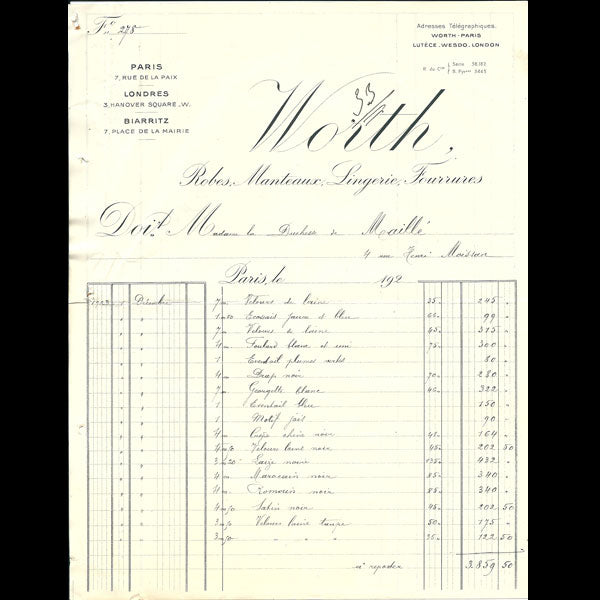 Fo. 278
Adresses Télégraphiques.
WORTH-PARIS
LUTÈCE.WESDO.LONDON
R. du Cce Seine 38.182
B. Pyrées 3445
PARIS
7, RUE DE LA PAIX
LONDRES
3, HANOVER SQUARE.W.
BIARRITZ
7, PLACE DE LA MAIRIE
Worth,
Robes, Manteaux, Lingerie, Fourrures
Doit M adame la Duchesse de Maillé
4 rue Henri Moissan
Paris, le 192
1923 1 Décembre 7m Velours de laine 35. 245 "
" " 1m50 Ecossais jaune et bleu 66. 99 "
" " 7m Velours de laine 45. 315 "
" " 4m Foulard blanc et uni 75. 300 "
" " 1 Eventail plumes 80 "
" " 4m Drap noir 70. 280 "
" " 7m Georgette blanc 46. 322 "
" " 1 Eventail bleu 150 "
" " 1 Motif jais 90 "
" " 4m Crêpe chine noir 164 "
" " 4m50 Velours laine noir 45. 202 50
" " Laize noire 135. 432 "
" " 4m Marocain noir 85. 340 "
" " 4m noir 85. 340 "
" " 4m50 Satin noir 45. 202 50
" " 3m50 Velours laine 50. 175 "
" " 3m50 " " " 35. 122 50
à reporter 3.859 50